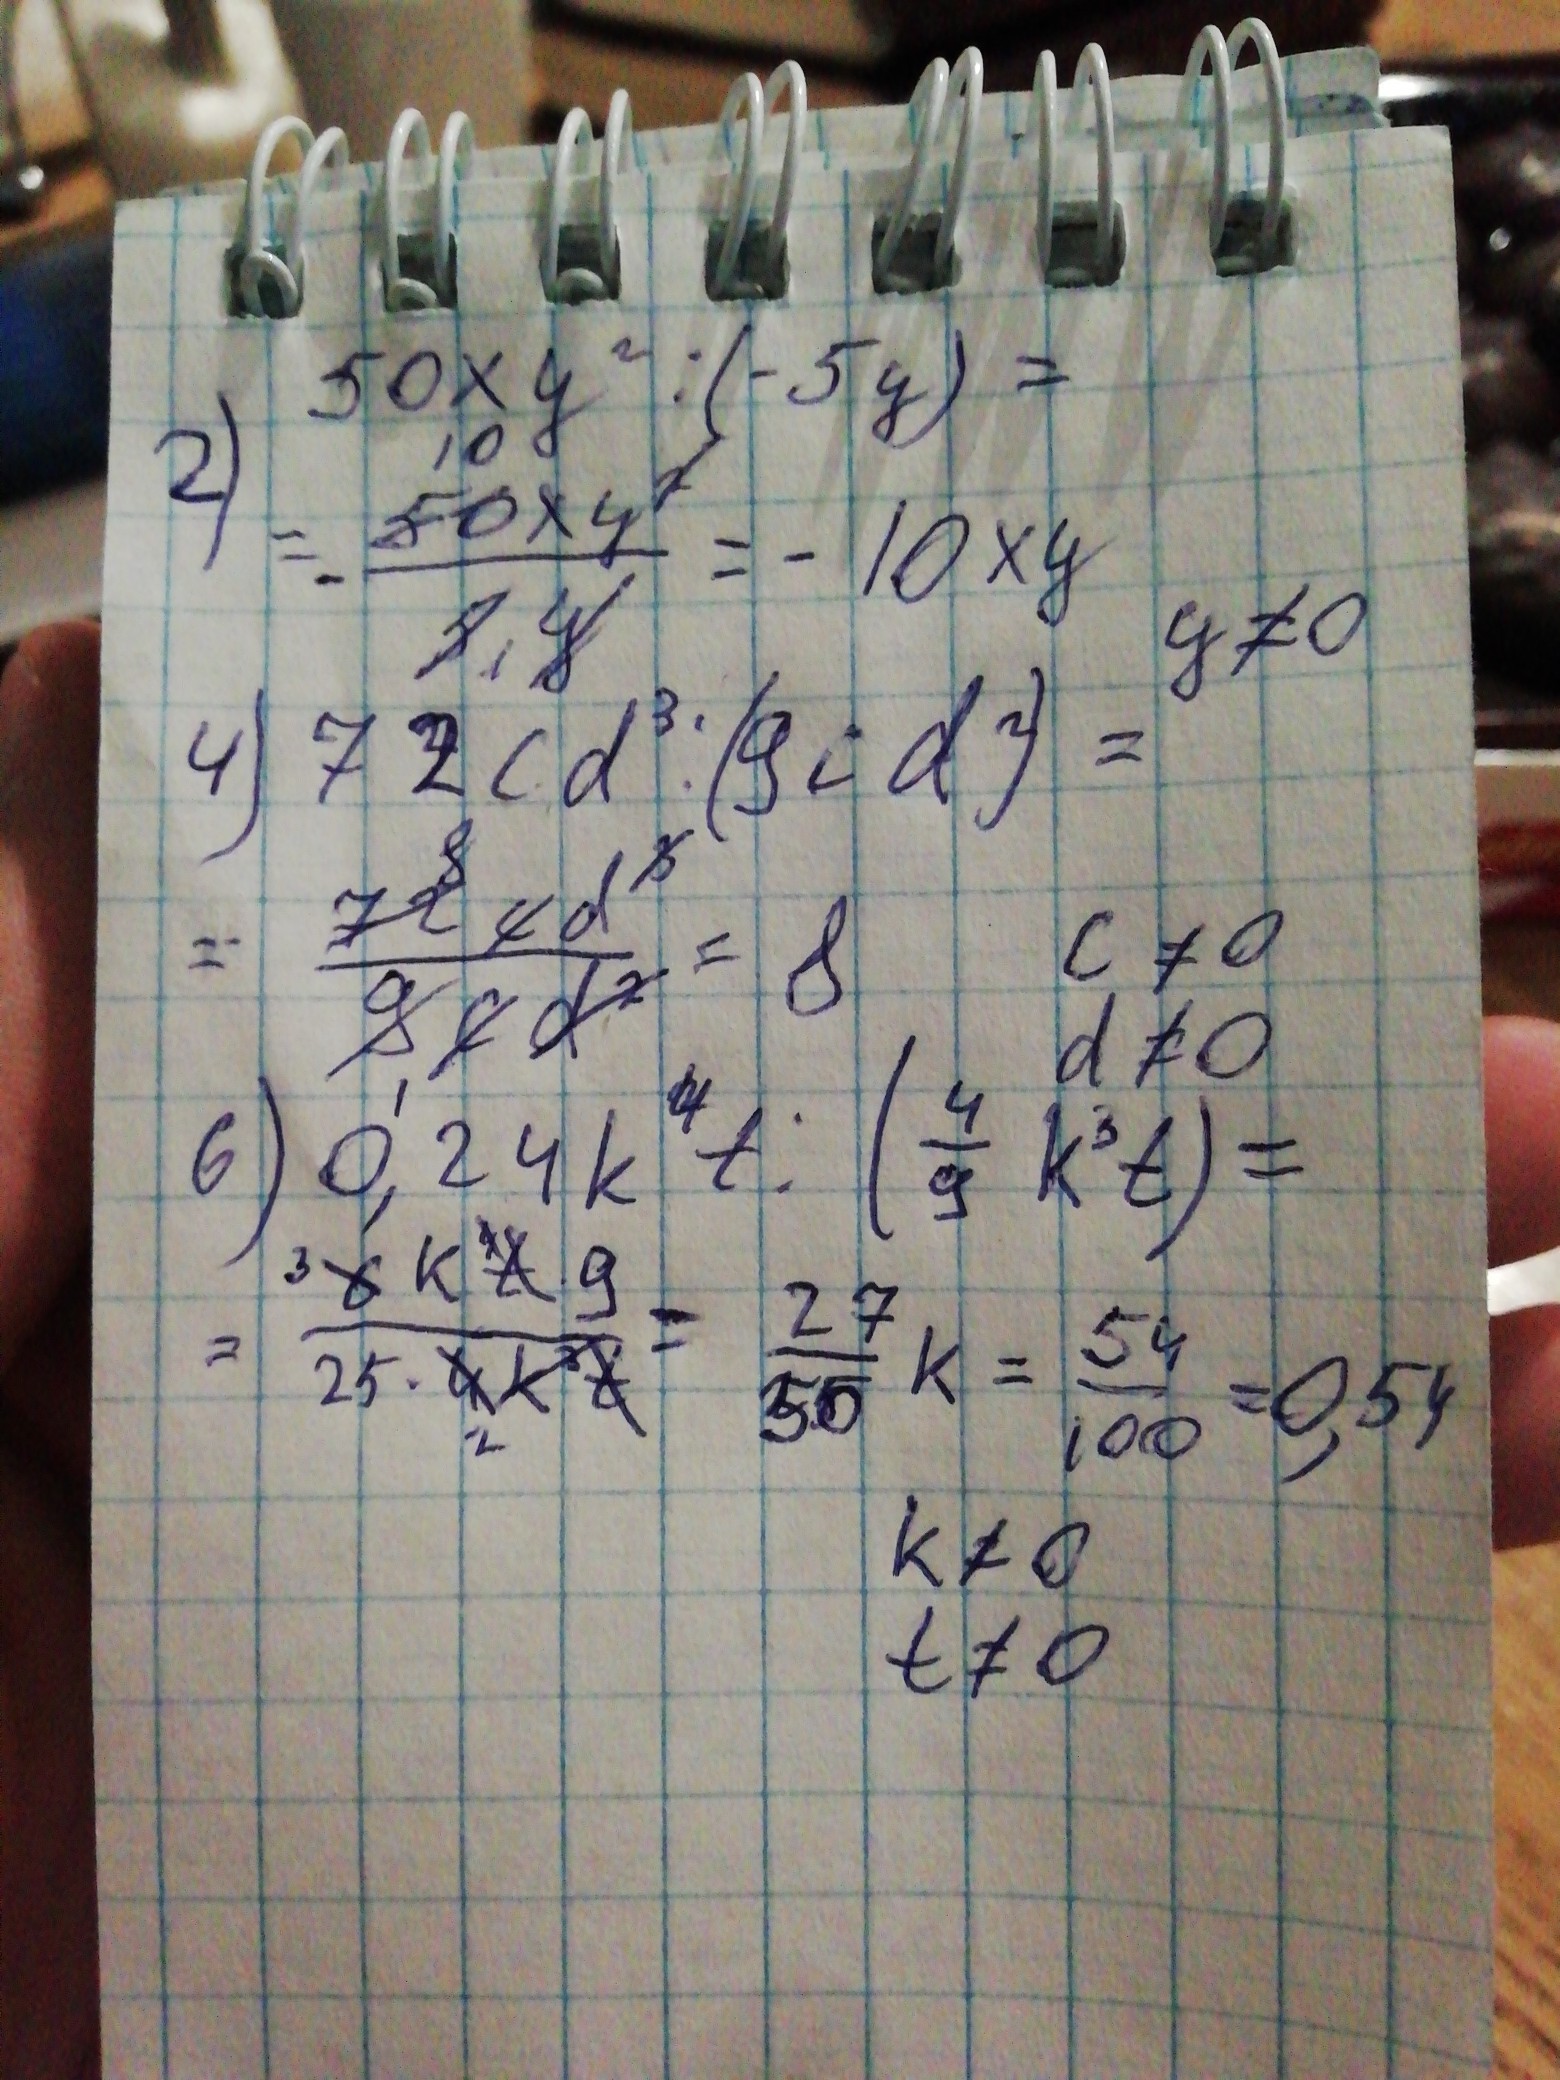 50xy² : (-5y) =
2)
10
= - 50xy² / 5y = -10xy
1
y ≠ 0
4) 72cd³ : (9cd²) =
= 72 8 cd³ / 9cd² = 8
1
c ≠ 0
d ≠ 0
6) 0,24k⁴t : (4/9 k³t) =
= 3 6 k⁴t · 9 / 25 · 4k³t = 27/50 k = 54/100 = 0,54
2
k ≠ 0
t ≠ 0